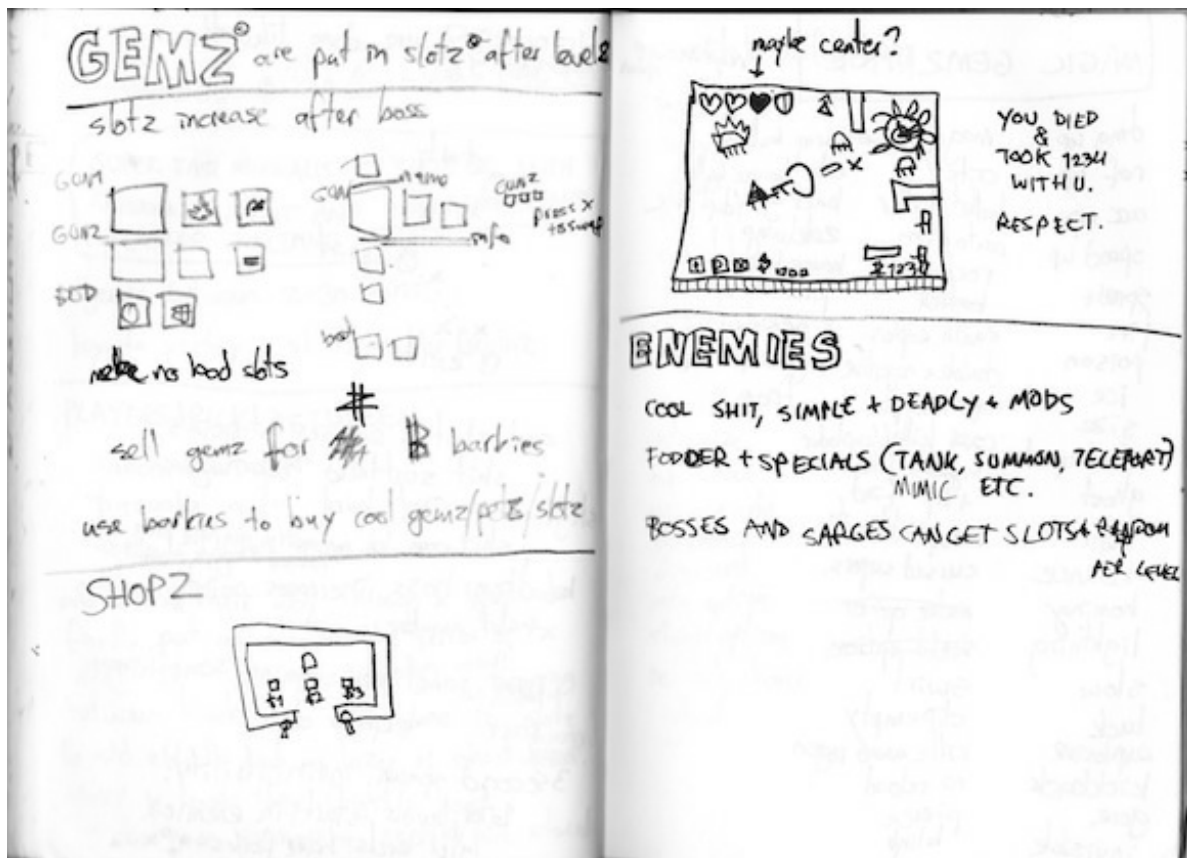 GEMZ are put in slotz after levelz
slotz increase after boss
GUN1
GUN2
BOD
GUN
name
info
GUNZ
press x
to swap
body
no bod slots
sell gemz for B barkies
use barkies to buy cool gemz/petz/slotz
SHOPZ
maybe center?
YOU DIED
&
TOOK 1234
WITH U.
RESPECT.
ENEMIES
COOL SHIT, SIMPLE + DEADLY + MODS
FODDER + SPECIALS (TANK, SUMMON, TELEPORT)
MIMIC ETC.
BOSSES AND SARGES CAN GET SLOTS RANDOM
PER LEVEL